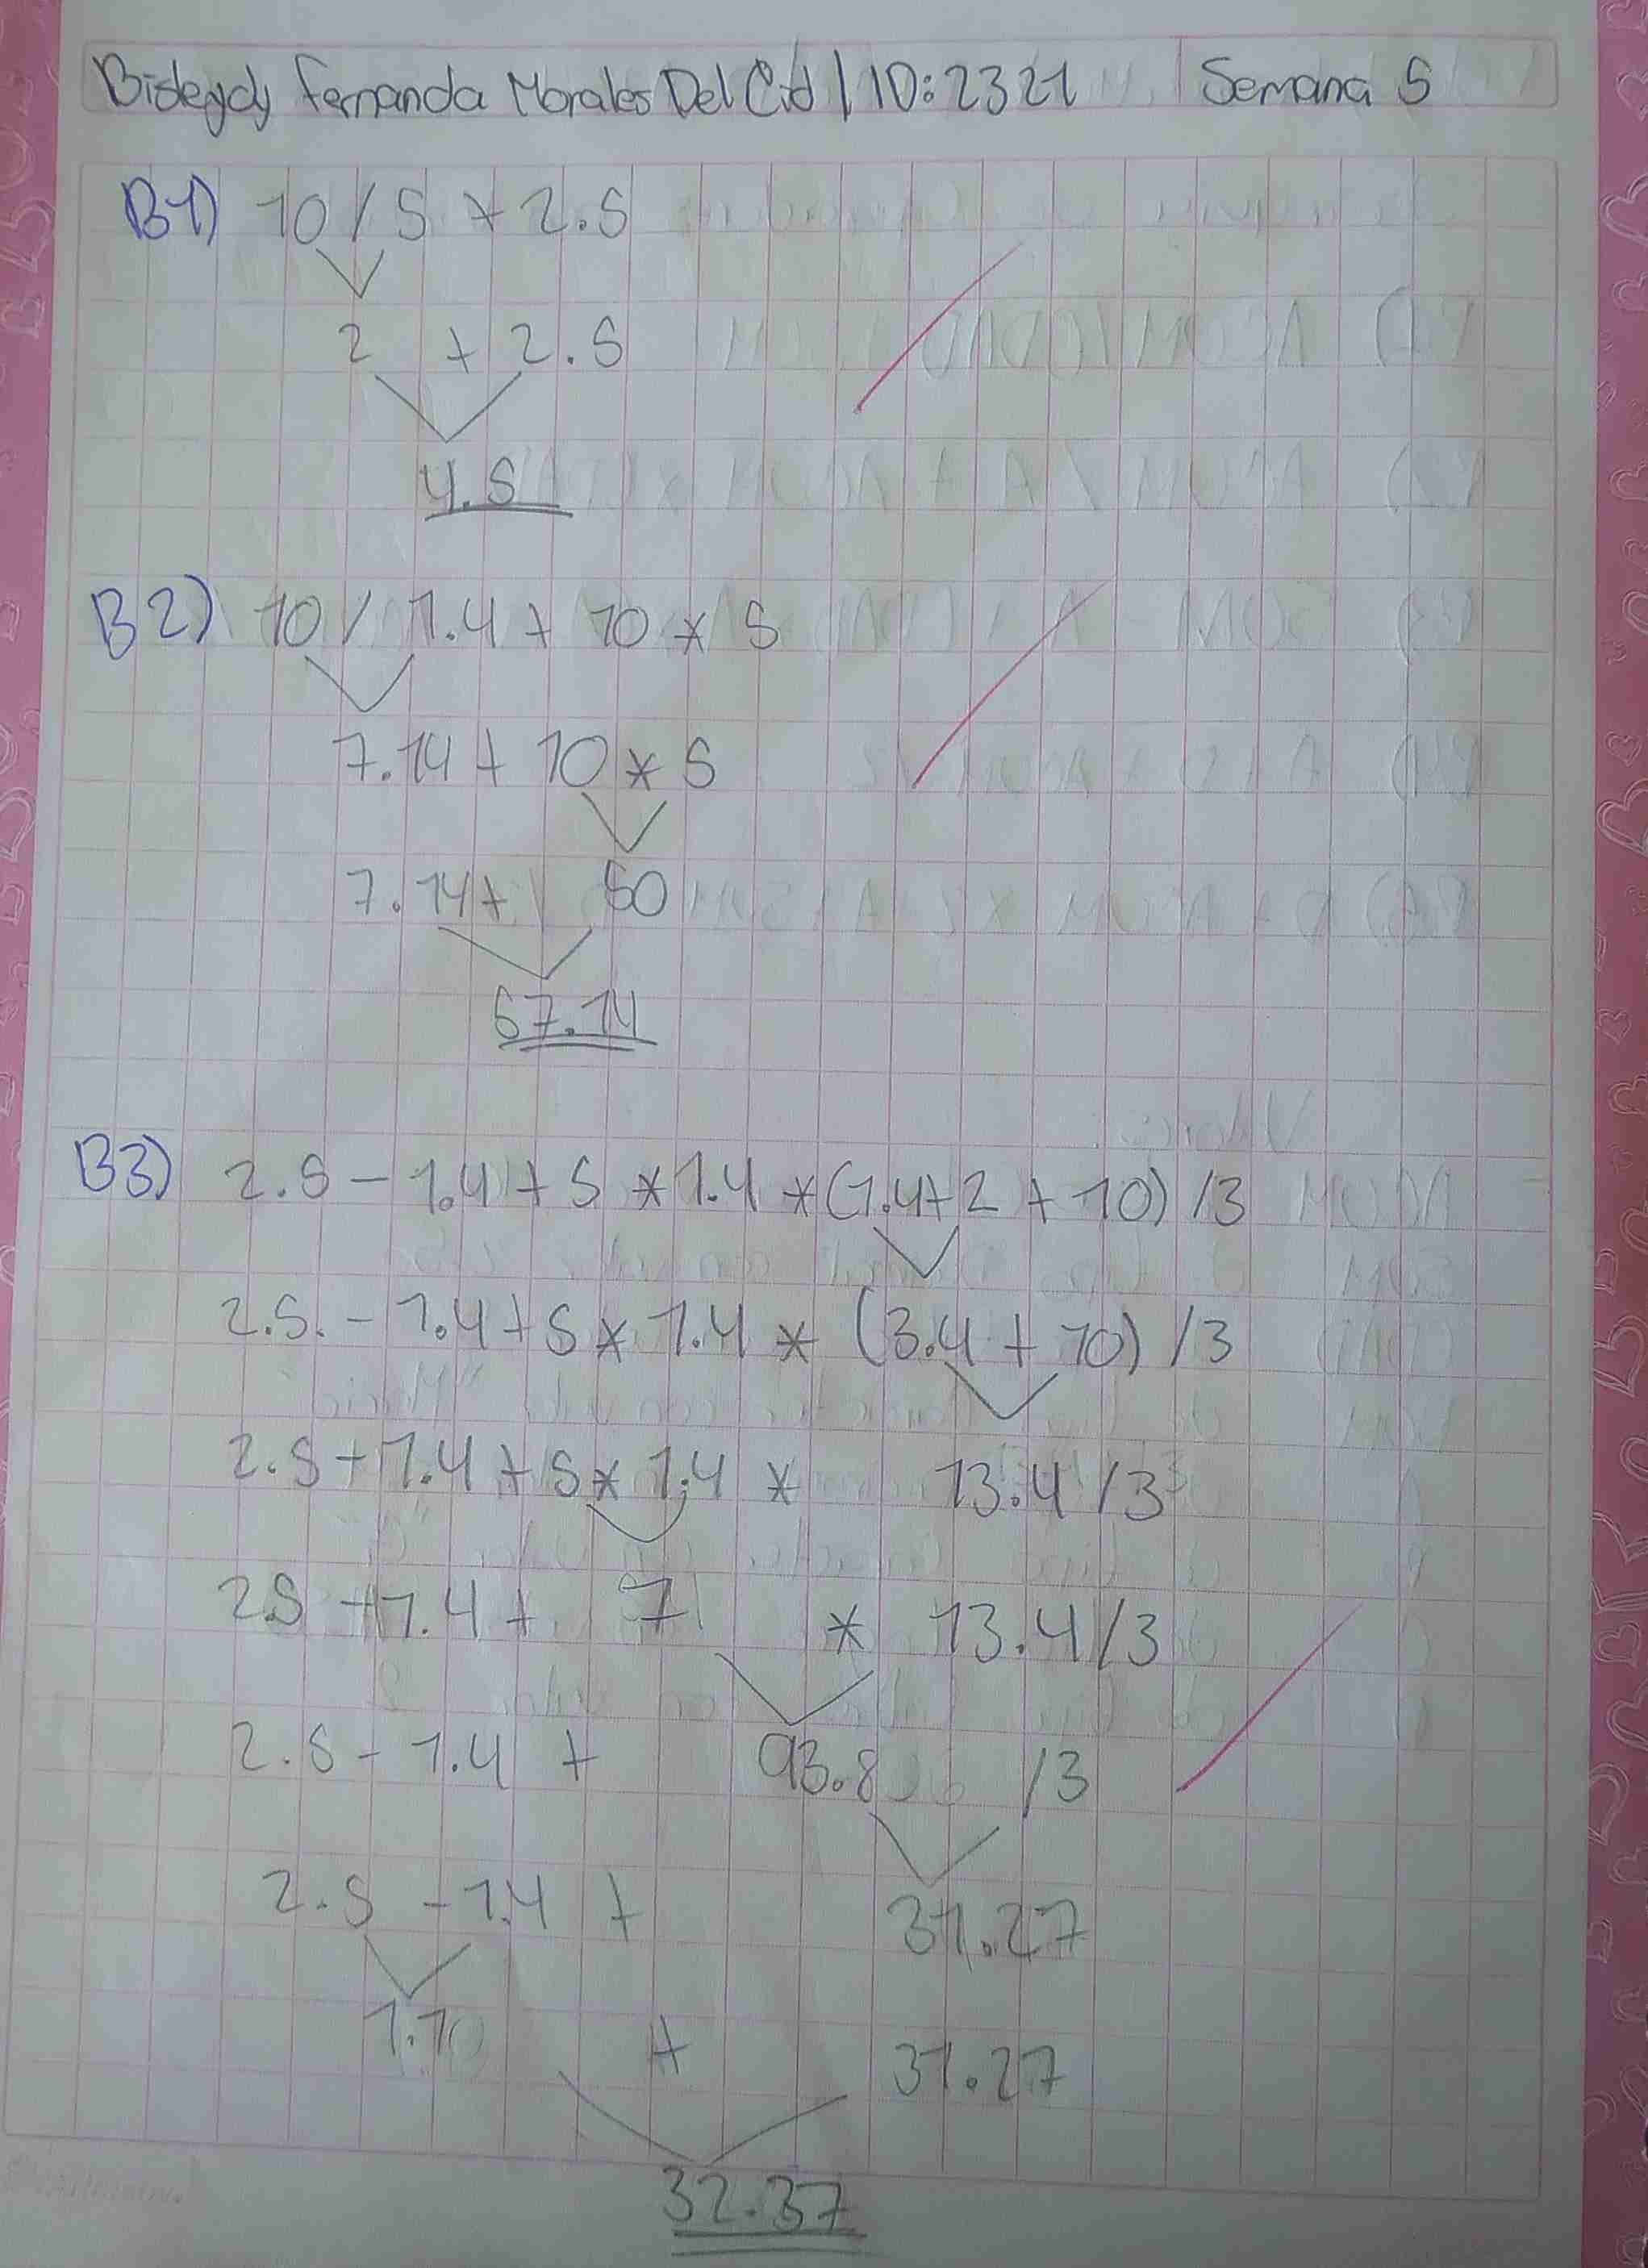 Bislegdy Fernanda Morales Del Cid | ID: 2321 Semana 5
B1) 10 / 5 + 2.5
2 + 2.5
4.5
B2) 10 / 1.4 + 10 * 5
7.14 + 10 * 5
7.14 + 50
57.14
B3) 2.5 - 1.4 + 5 * 1.4 * (1.4 + 2 + 10) / 3
2.5. - 1.4 + 5 * 1.4 * (3.4 + 10) / 3
2.5 + 1.4 + 5 * 1.4 * 13.4 / 3
2.5 + 1.4 + 7 * 13.4 / 3
2.5 - 1.4 + 93.8 / 3
2.5 - 1.4 + 31.27
1.10 + 31.27
32.37